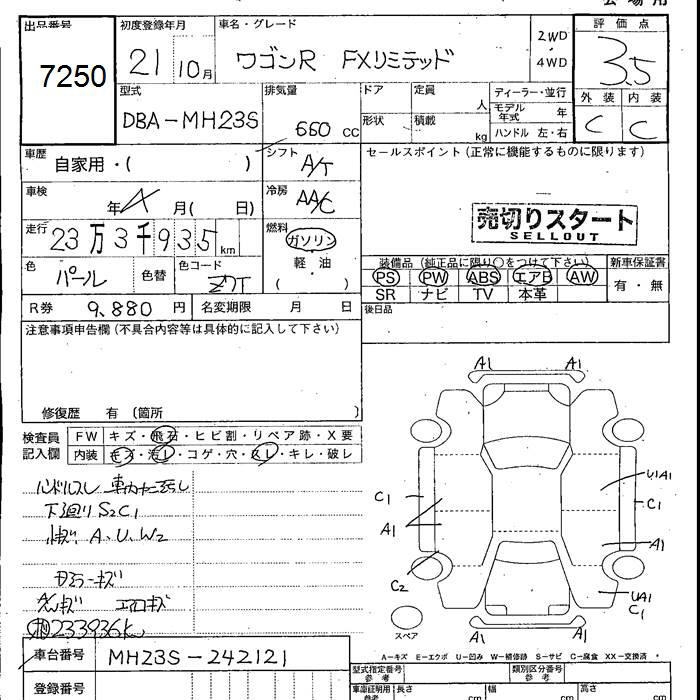 会場用
出品番号 初度登録年月 車名・グレード 2WD ・ 4WD 評価点
7250 21 年 10月 ワゴンR FXリミテッド 3.5
型式 排気量 ドア 定員 人 ディーラー・並行 外装 内装
DBA-MH23S 660 CC 形状 積載 kg モデル年式 年 C C
ハンドル 左・右
車歴 自家用・( ) シフト A/T セールスポイント(正常に機能するものに限ります)
車検 年 月( 日) 冷房 AA/C
売切りスタート
SELLOUT
走行 23万3千935km 燃料 ガソリン
軽・油
( )
色 パール 色替 色コード Z7T
装備品(純正品に限り○をつけて下さい) 新車保証書
PS PW ABS エアB AW 有・無
SR ナビ TV 本革
R券 9,880 円 名変期限 月 日 後日品
注意事項申告欄(不具合内容等は具体的に記入して下さい)
修復歴 有 〔箇所 〕
検査員記入欄 FW キズ・飛石・ヒビ割・リペア跡・X要
内装 キズ・汚レ・コゲ・穴・スレ・キレ・破レ
ハンドルスレ
下廻りS2C1
A.U.W2
ミラーキズ
エアロキズ
233936k
A1 A1
C1 A1 C2
U1A1 C1 A1 UA1 C1
A1 A1
スペア
A-キズ E-エクボ U-凹み W-補修跡 S-サビ C-腐食 XX-交換済 *
車台番号 MH23S-242121
型式指定番号 参考 類別区分番号 参考
登録番号
車庫証明用 参考 長さ cm 幅 cm 高さ cm